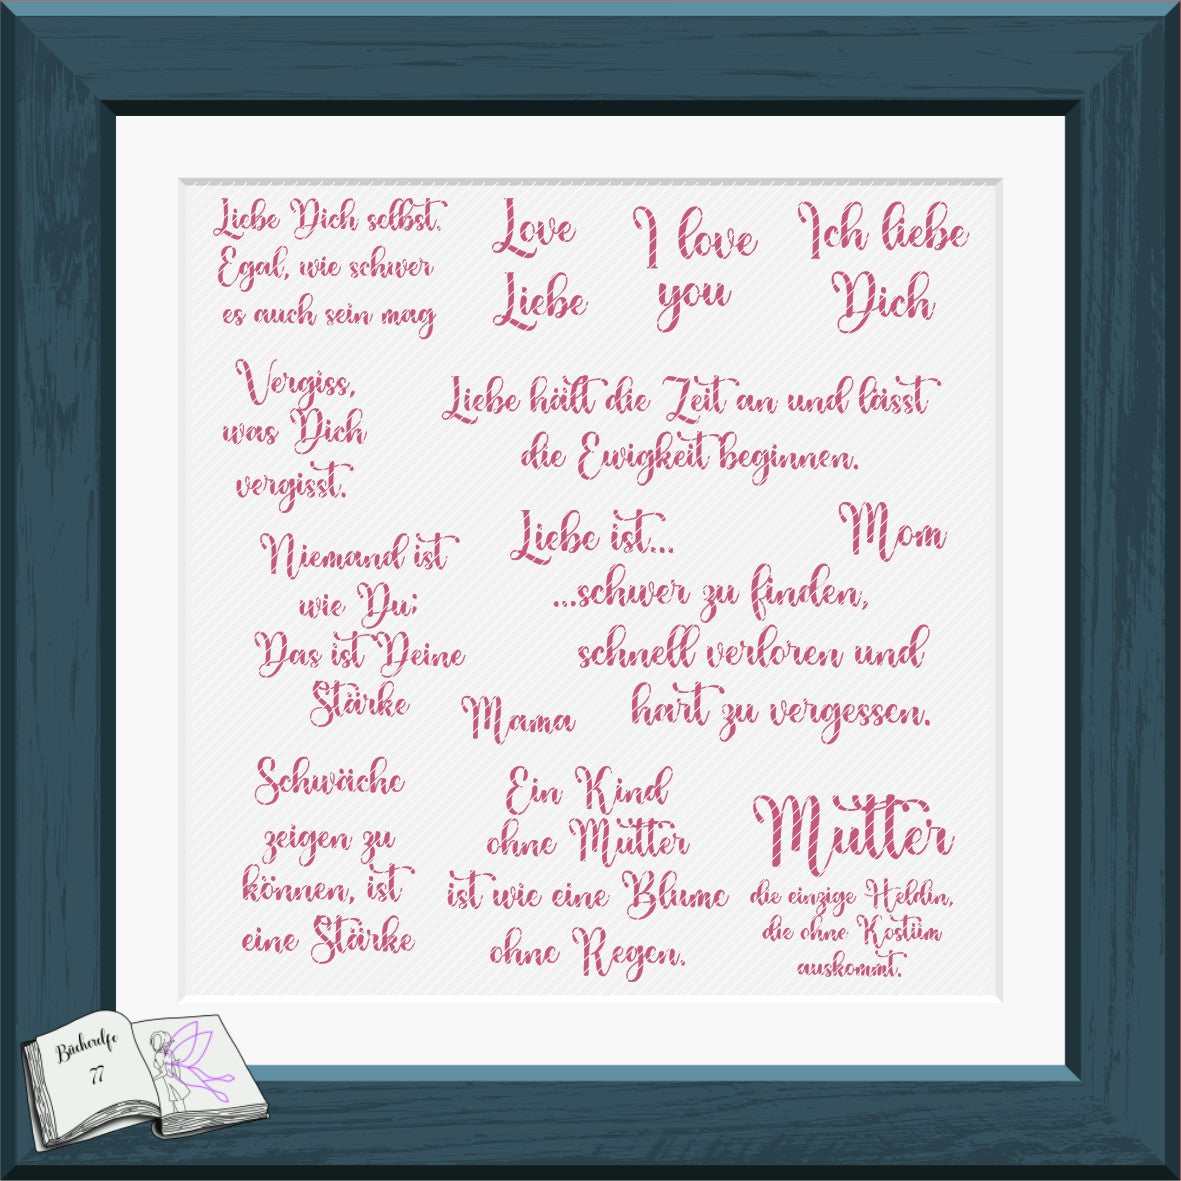 Liebe Dich selbst.
Egal, wie schwer
es auch sein mag
Love
Liebe
I love
you
Ich liebe
Dich
Vergiss,
was Dich
vergisst.
Liebe hält die Zeit an und lässt
die Ewigkeit beginnen.
Niemand ist
wie Du;
Das ist Deine
Stärke
Liebe ist...
...schwer zu finden,
schnell verloren und
hart zu vergessen.
Mom
Mama
Schwäche
zeigen zu
können, ist
eine Stärke
Ein Kind
ohne Mutter
ist wie eine Blume
ohne Regen.
Mutter
die einzige Heldin,
die ohne Kostüm
auskommt.
Bücherelfe
77